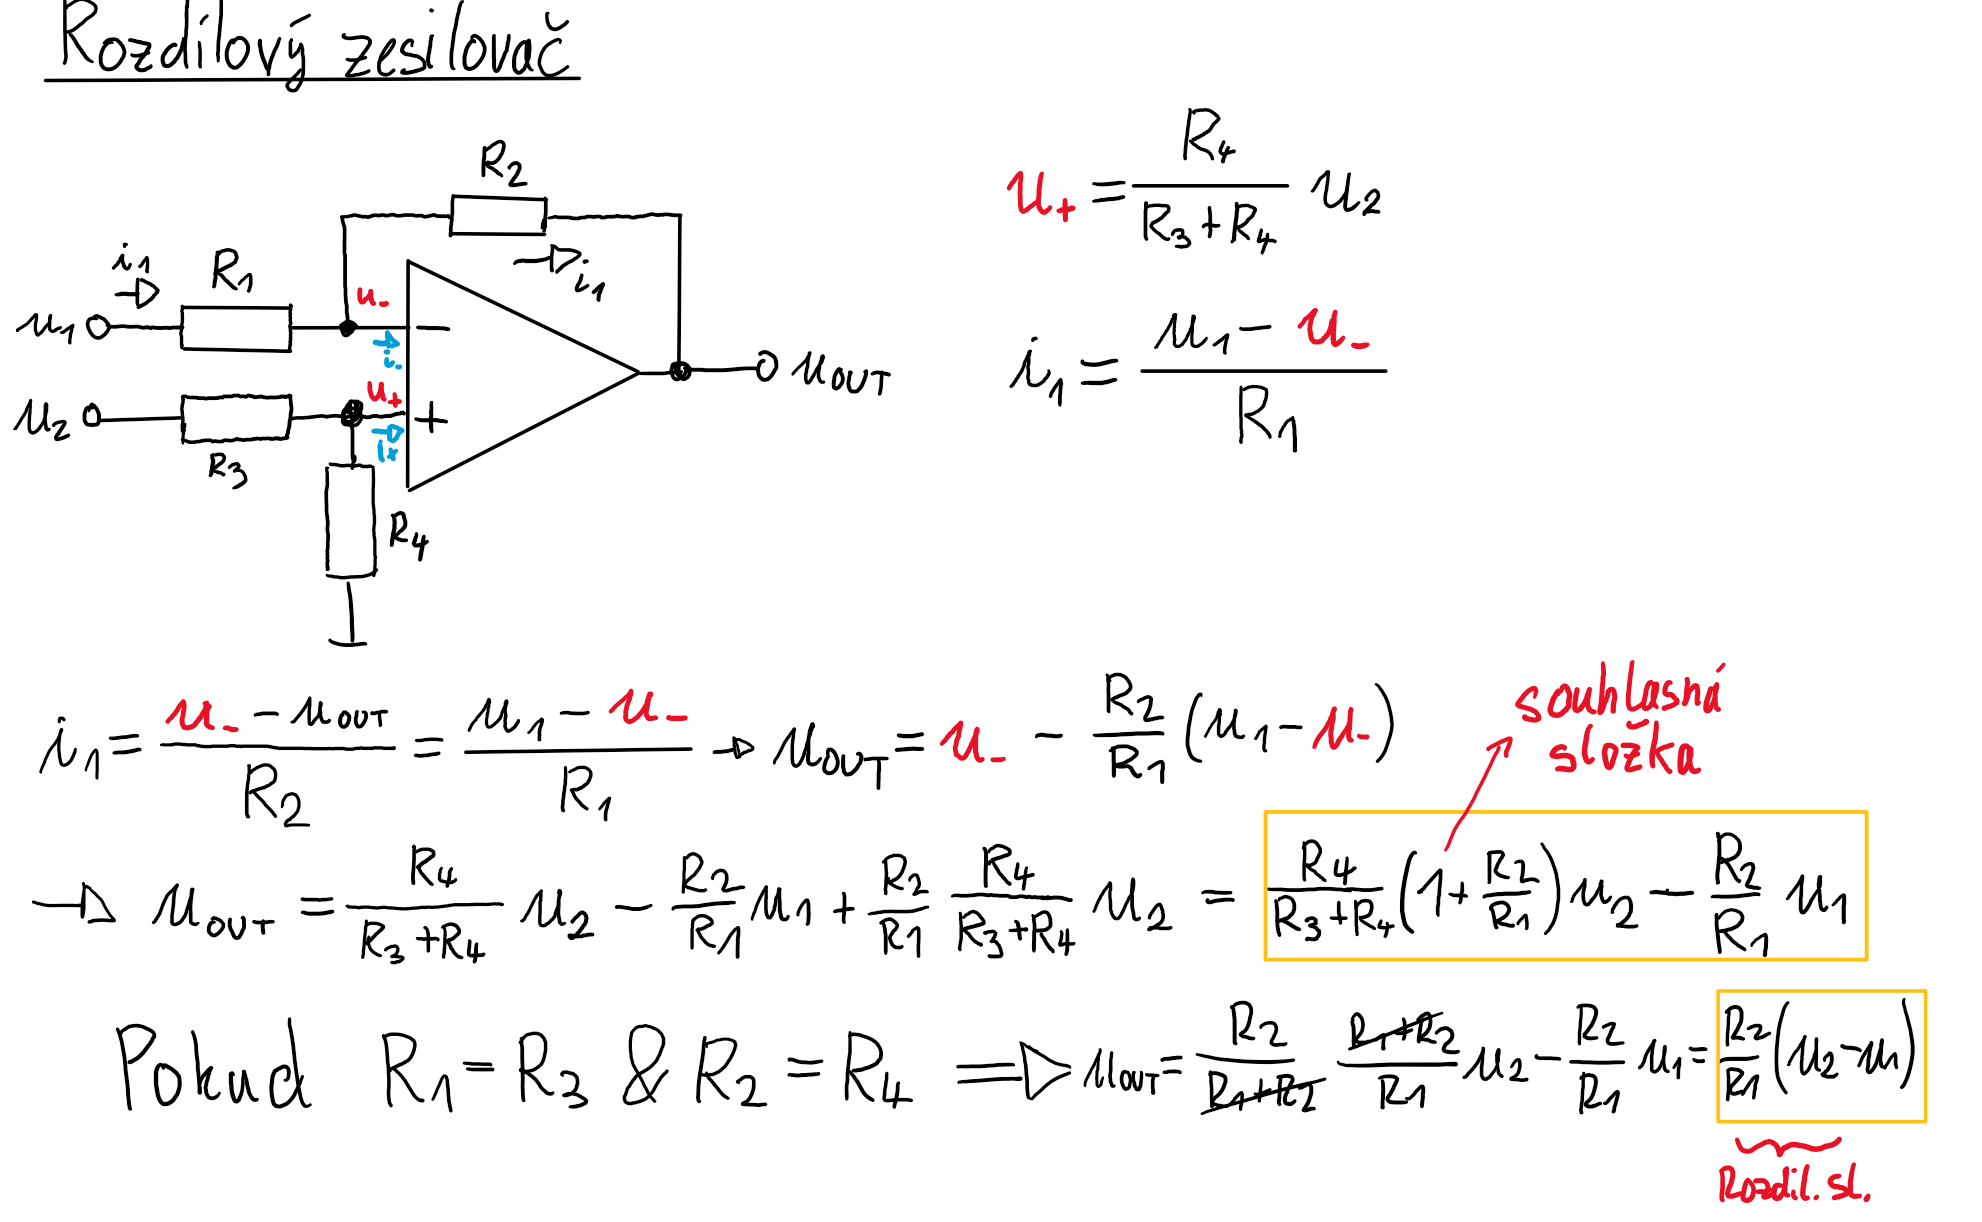 Rozdílový zesilovač
R2
i1
R1
i1
u1
u-
−
i-
uOUT
u2
u+
+
ix
R3
R4
u+ = R4/(R3+R4) u2
i1 = (u1 − u-)/R1
i1 = (u- − uOUT)/R2 = (u1 − u-)/R1 → uOUT = u- − R2/R1 (u1 − u-)
souhlasná
složka
→ uOUT = R4/(R3+R4) u2 − R2/R1 u1 + R2/R1 R4/(R3+R4) u2 = R4/(R3+R4) (1 + R2/R1) u2 − R2/R1 u1
Pokud R1 = R3 & R2 = R4 ⇒ uOUT = R2/(R1+R2) (R1+R2)/R1 u2 − R2/R1 u1 = R2/R1 (u2 − u1)
Rozdíl. sl.